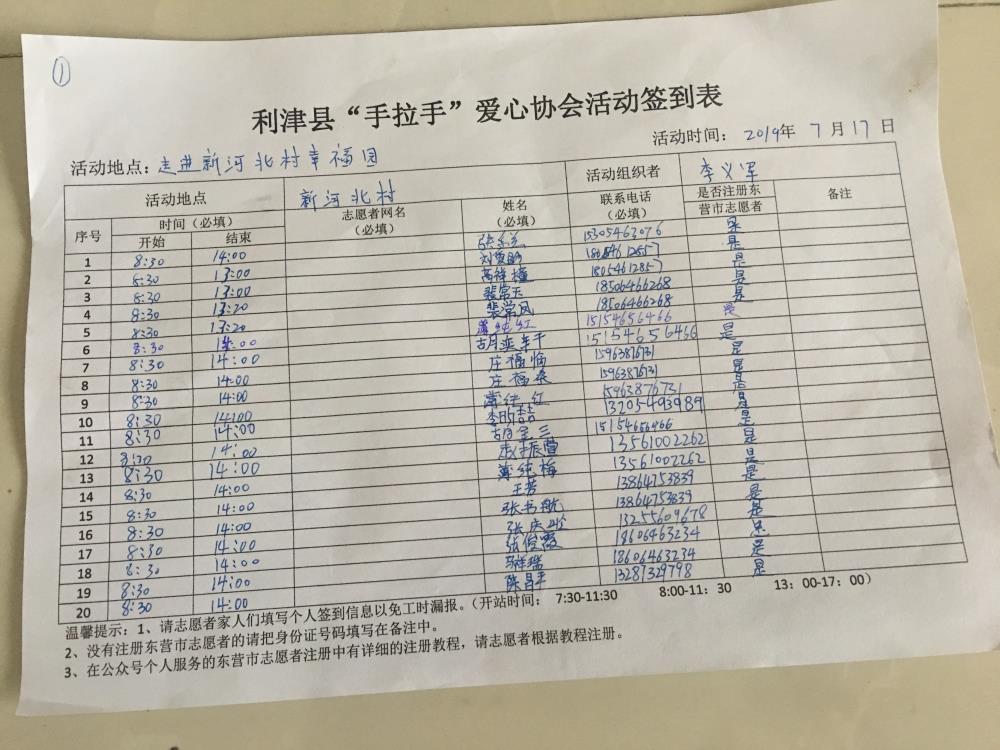 ①
利津县“手拉手”爱心协会活动签到表
活动地点：走进新河北村幸福园 活动时间：2019年 7月17日
活动地点 新河北村 活动组织者 李义军
序号 时间（必填） 志愿者网名（必填） 姓名（必填） 联系电话（必填） 是否注册东营市志愿者 备注
开始 结束
1 8:30 14:00 15305463076 是
2 8:30 13:00 刘爱明 18054612857 是
3 8:30 13:00 高祥檀 18054612857 是
4 8:30 13:20 裴常玉 18506466268 是
5 8:30 13:20 裴常凤 18506466268 是
6 8:30 14:00 薄纯红 15154656466 是
7 8:30 14:00 胡奕轩 15154656466 是
8 8:30 14:00 庄福临 15963876731 是
9 8:30 14:00 庄福桑 15963876731 是
10 8:30 14:00 薄纯红 15963876731 是
11 8:30 14:00 李昀喆 13205493989 是
12 8:30 14:00 胡金三 15154656466 是
13 8:30 14:00 赵振萱 13561002262 是
14 8:30 14:00 薄纯梅 13561002262 是
15 8:30 14:00 王芳 13864753839 是
16 8:30 14:00 张书航 13864753839 是
17 8:30 14:00 张庆 13255609678 是
18 8:30 14:00 张俊霞 18606463234 是
19 8:30 14:00 马祥瑞 18606463234 是
20 8:30 14:00 陈昌平 13281329798 是
温馨提示：1、请志愿者家人们填写个人签到信息以免工时漏报。（开站时间： 7:30-11:30 8:00-11：30 13：00-17：00）
2、没有注册东营市志愿者的请把身份证号码填写在备注中。
3、在公众号个人服务的东营市志愿者注册中有详细的注册教程，请志愿者根据教程注册。